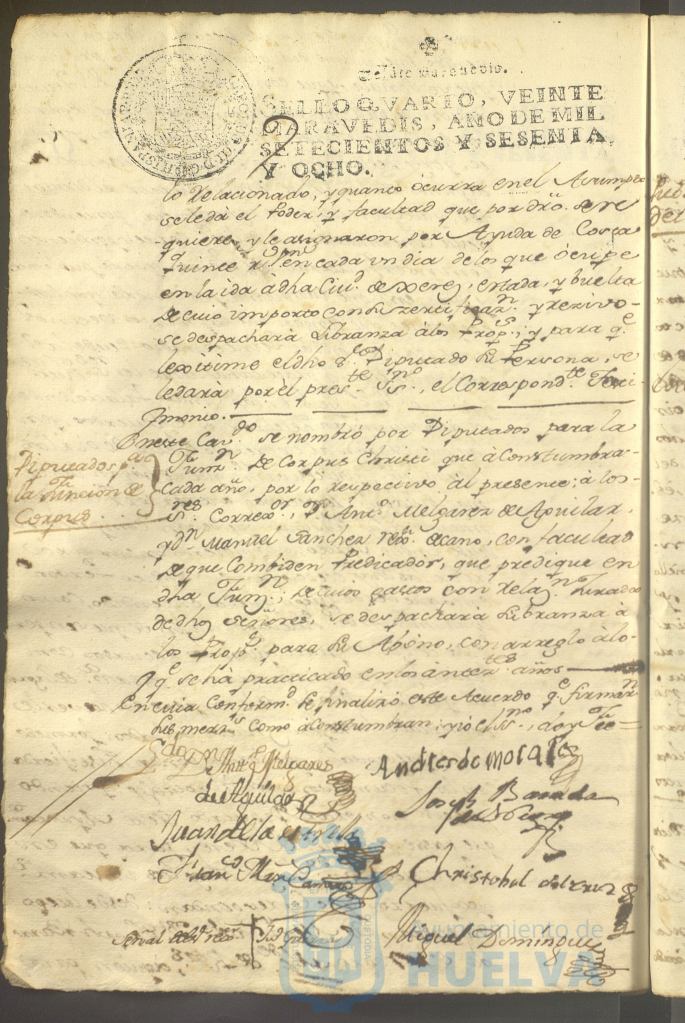 Veinte maravedis.
SELLO QVARTO, VEINTE
MARAVEDIS, AÑO DE MIL
SETECIENTOS Y SESENTA
Y OCHO.
lo relacionado, y quanto ocurra en el Asumpto
se le da el Poder, y facultad que por dro. se re
quiere, y le asignaron por Ayuda de Costa
quince rs. en cada un dia de los que ocupe
en la ida a dha Ciud. de Xerez, estada, y buelta
de cuio importe con su zertificazn. y rezivo
se despachara Libranza a los Props.; y para qe.
lexitime el dho Sr. Diputado su Persona, se
le dara por el preste. Sno., el Correspondte. Testi
monio.
Diputados pa.
la Función de
Corpus.
En este Cavdo. se nombró por Diputados para la
Funzn. de Corpus Christi que à Constumbra
cada año, por lo respectivo àl presente; à los
Sres. Correxor., Dn. Anto. Melgarez de Aguilar,
y Dn. Manuel Sanchez rexor. decano, con facultad
de que Combiden Predicador, que predique en
dha Funzn.; de cuios gastos con relazn. Jurada
de dhos señores, se despachara Libranza à
los Props. para su Abono, con arreglo à lo
qe. se há practicado en los anteres. años
En esta Conformd. se finalizó este Acuerdo qe. firmarn.
sus merzs. como acostumbran; yo el Sno., doy Fee=
Melgares
de Aguilar
Andres de Morales
Joseph Barada
Juan de la
Franco. Marn.
Christobal del Cruz
Señal del Sr. rexor.
Miguel Dominguez
Ayuntamiento de
HUELVA